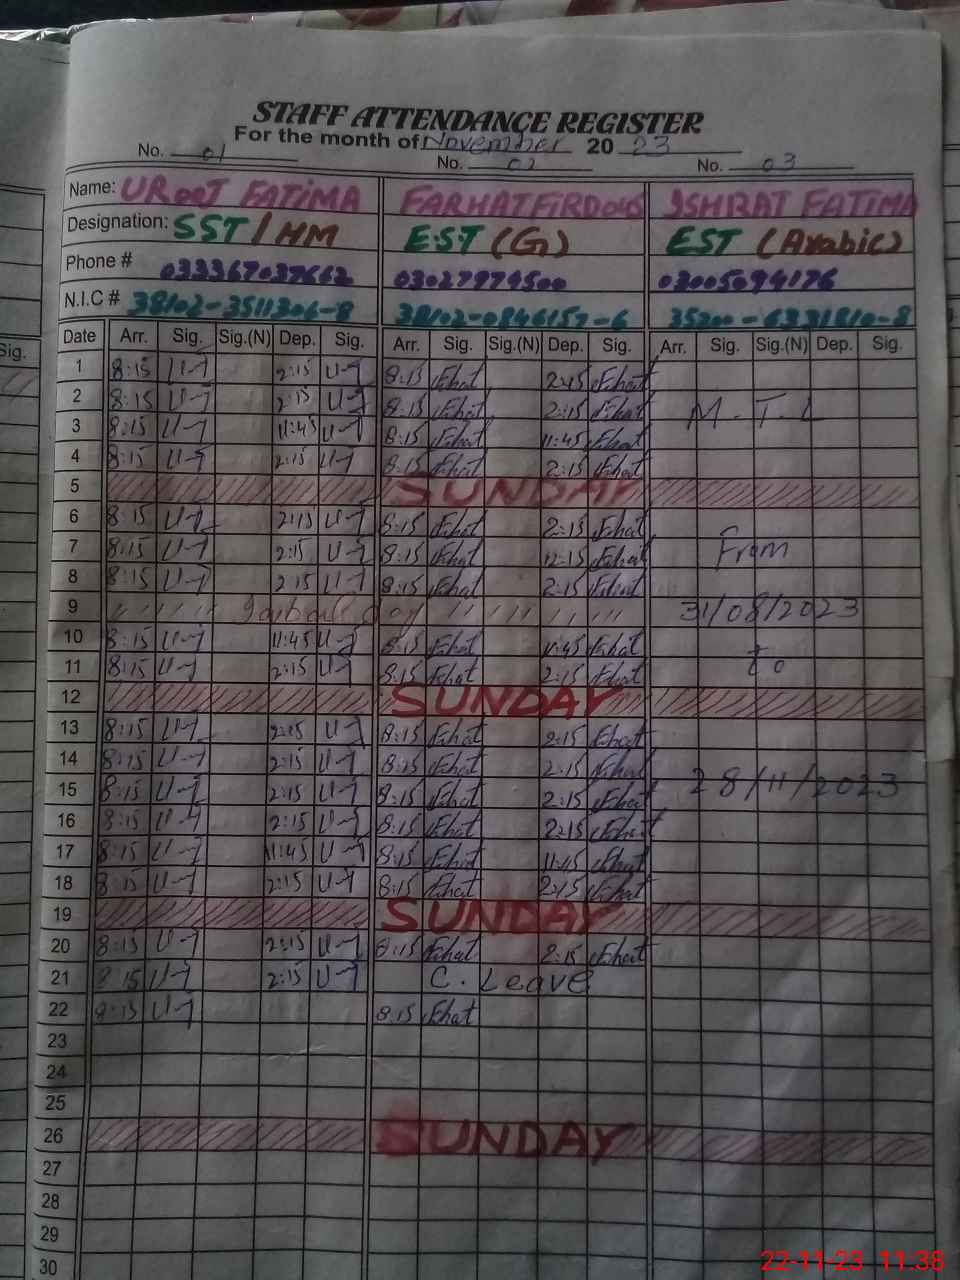 STAFF ATTENDANCE REGISTER
For the month of November 20 23
No. 01 No. 02 No. 03
Name: UROOJ FATIMA FARHAT FIRDOUS ISHRAT FATIMA
Designation: SST / HM E.S.T (G) EST (Arabic)
Phone # 033367037662 03027974500 03005094176
N.I.C # 38102-3511306-8 38102-0846157-6 35200-6331810-8
Date Arr. Sig. Sig.(N) Dep. Sig. Arr. Sig. Sig.(N) Dep. Sig. Arr. Sig. Sig.(N) Dep. Sig.
1 8:15 2:15 8:15 Fhat 2:15 Fhat
2 8:15 2:15 8:15 Fhat 2:15 Fhat M. T. L
3 8:15 11:45 8:15 Fhat 11:45 Fhat
4 8:15 2:15 8:15 Fhat 2:15 Fhat
5 SUNDAY
6 8:15 2:15 8:15 Fhat 2:15 Fhat
7 8:15 2:15 8:15 Fhat 12:15 Fhat From
8 8:15 2:15 8:15 Fhat 2:15 Fhat
9 Iqbal day 31/08/2023
10 8:15 11:45 8:15 Fhat 11:45 Fhat
11 8:15 2:15 8:15 Fhat 2:15 Fhat to
12 SUNDAY
13 8:15 2:15 8:15 Fhat 2:15 Fhat
14 8:15 2:15 8:15 Fhat 2:15 Fhat
15 8:15 2:15 8:15 Fhat 2:15 Fhat 28/11/2023
16 8:15 2:15 8:15 Fhat 2:15 Fhat
17 8:15 11:45 8:15 Fhat 11:45 Fhat
18 8:15 2:15 8:15 Fhat 2:15 Fhat
19 SUNDAY
20 8:15 2:15 8:15 Fhat 2:15 Fhat
21 8:15 2:15 C. Leave
22 8:15 8:15 Fhat
23
24
25
26 SUNDAY
27
28
29
30
22-11-23 11:38